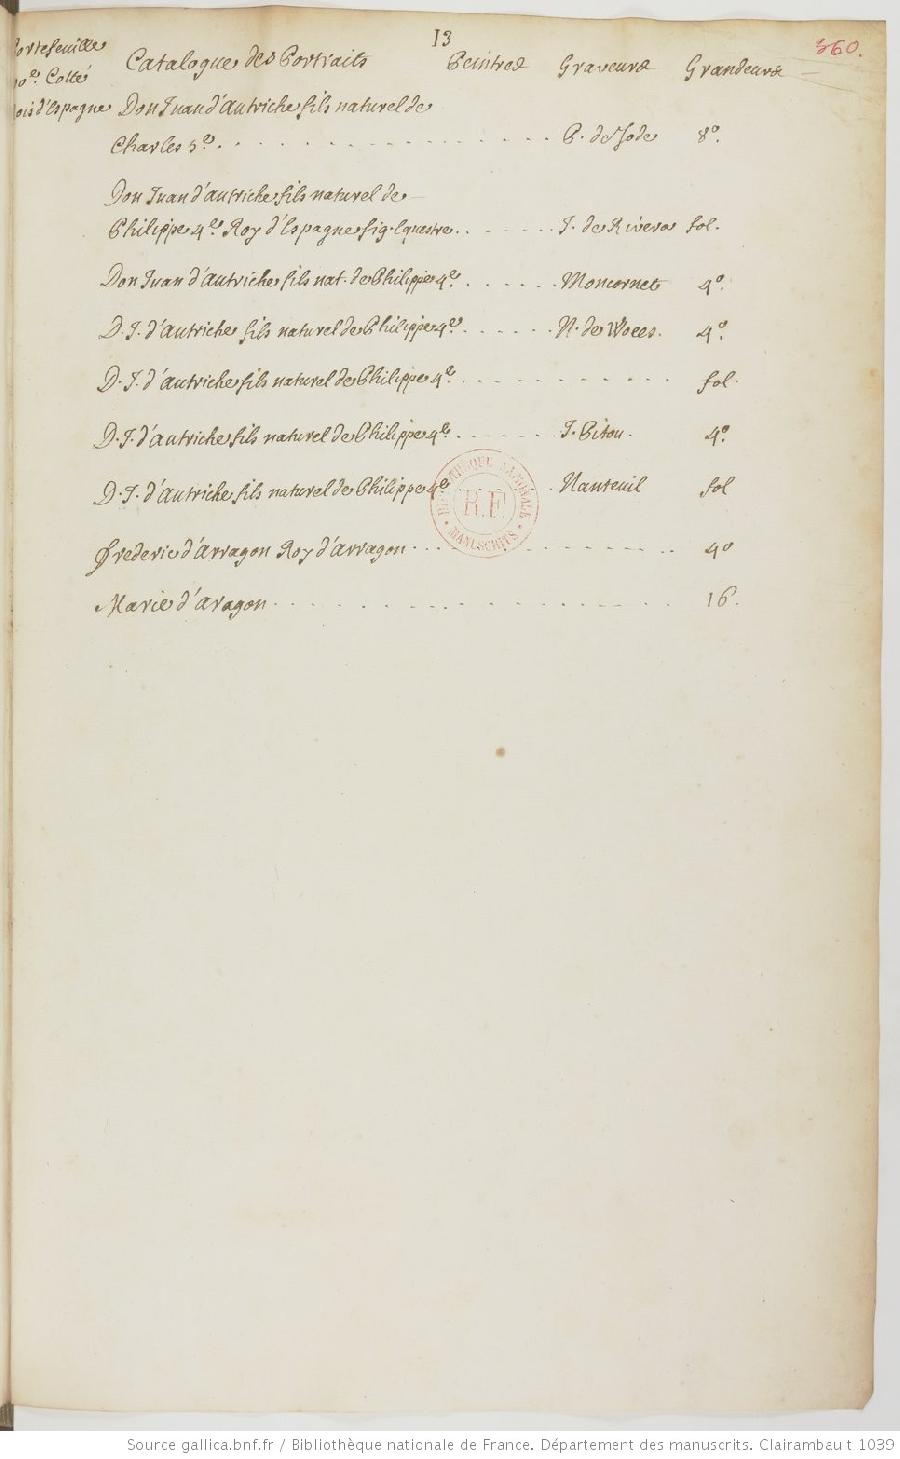 13
360.
Portefeuille Catalogue des Portraits Peintres Graveurs Grandeurs
Cotté
Rois d'Espagne Don Juan d'autriche fils naturel de
Charles 5.e P. de Jode 8.o
Don Juan d'autriche fils naturel de
Philippe 4.e Roy d'Espagne fig. Equestre J. de Rivera fol.
Don Juan d'autriche fils nat. de Philippe 4.e Moncornet 4.o
D. J. d'autriche fils naturel de Philippe 4.e N. de 4.o
D. J. d'autriche fils naturel de Philippe 4.e fol.
D. J. d'autriche fils naturel de Philippe 4.e J. Pitou. 4.o
D. J. d'autriche fils naturel de Philippe 4.e Nanteuil fol
BIBLIOTHEQUE NATIONALE
R.F.
MANUSCRITS
Frederic d'arragon Roy d'arragon 4o
Marie d'aragon 16.
Source gallica.bnf.fr / Bibliothèque nationale de France. Département des manuscrits. Clairambault 1039